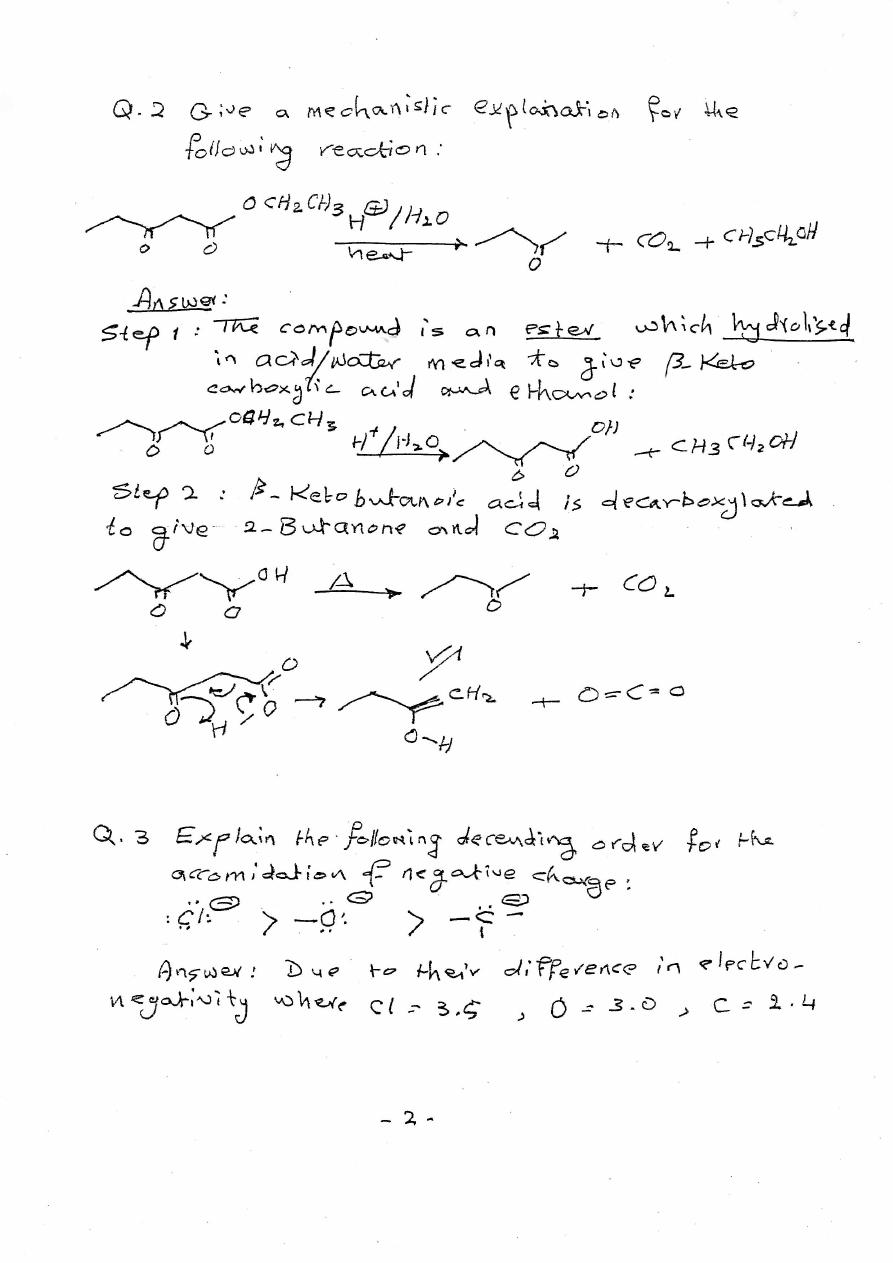 Q. 2 Give a mechanistic explanation for the
following reaction :
O CH2 CH3 H⊕/H2O
O O heat O + CO2 + CH3CH2OH
Answer:
Step 1 : The compound is an ester which hydrolised
in acid/water media to give β-Keto
carboxylic acid and ethanol :
OCH2 CH3 H+/H2O OH
O O O O + CH3 CH2 OH
Step 2 : β-Ketobutanoic acid is decarboxylated
to give 2-Butanone and CO2
OH Δ + CO2
O O O
O CH2 + O=C=O
O H O O-H
Q. 3 Explain the following decending order for the
accomidation of negative charge :
:Cl:⊖ > -O:⊖ > -C-⊖
Answer: Due to their difference in electro-
negativity where Cl = 3.5 , O = 3.0 , C = 2.4
- 2 -